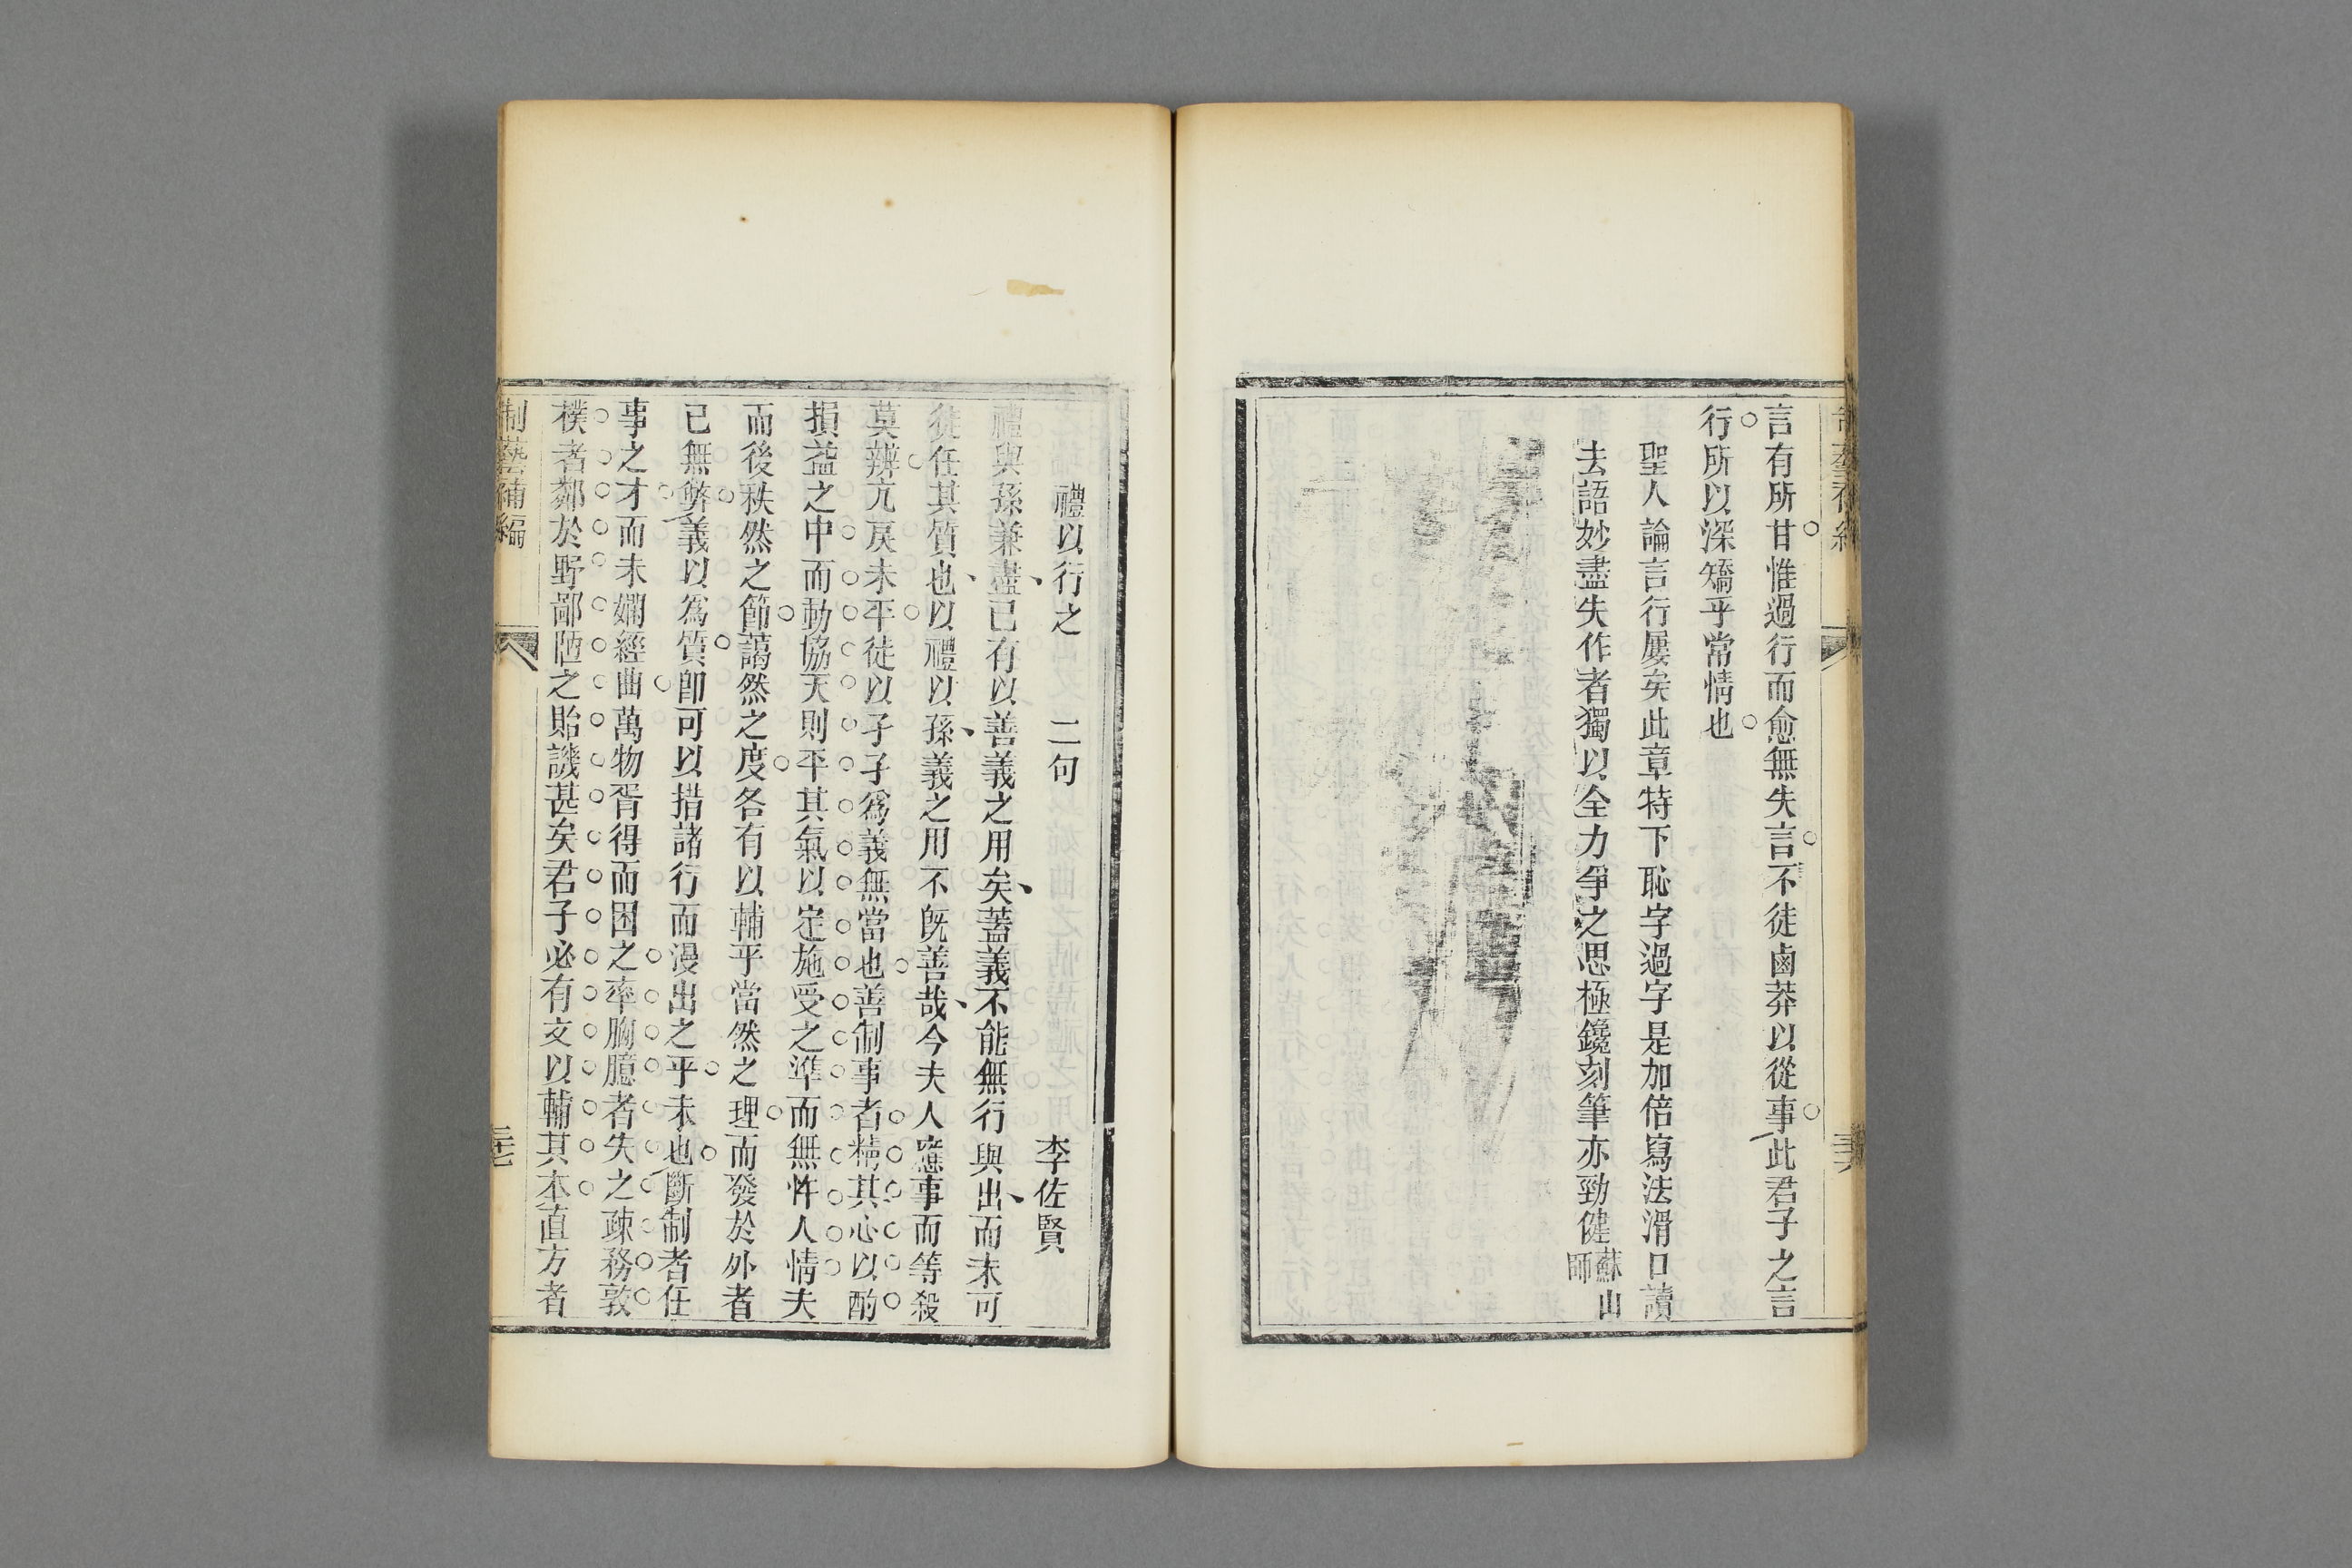 言有所甘惟過行而愈無失言不徒鹵莽以從事此君子之言
行所以深矯乎常情也
聖人論言行屢矣此章特下恥字過字是加倍寫法滑口讀
去語妙盡失作者獨以全力爭之思極鑱刻筆亦勁健蘇山師
禮以行之 二句 李佐賢
禮與孫兼盡已有以善義之用矣蓋義不能無行與出而未可
徒任其質也以禮以孫義之用不既善哉今夫人應事而等殺
莫辨亢戾未平徒以孑孑爲義無當也善制事者精其心以酌
損益之中而動協天則平其氣以定施受之準而無忤人情夫
而後秩然之節藹然之度各有以輔乎當然之理而發於外者
已無弊義以爲質卽可以措諸行而漫出之乎未也斷制者任
事之才而未嫻經曲萬物胥得而困之率胸臆者失之疎務敦
樸者鄰於野鄙陋之貽譏甚矣君子必有文以輔其本直方者
制藝補編